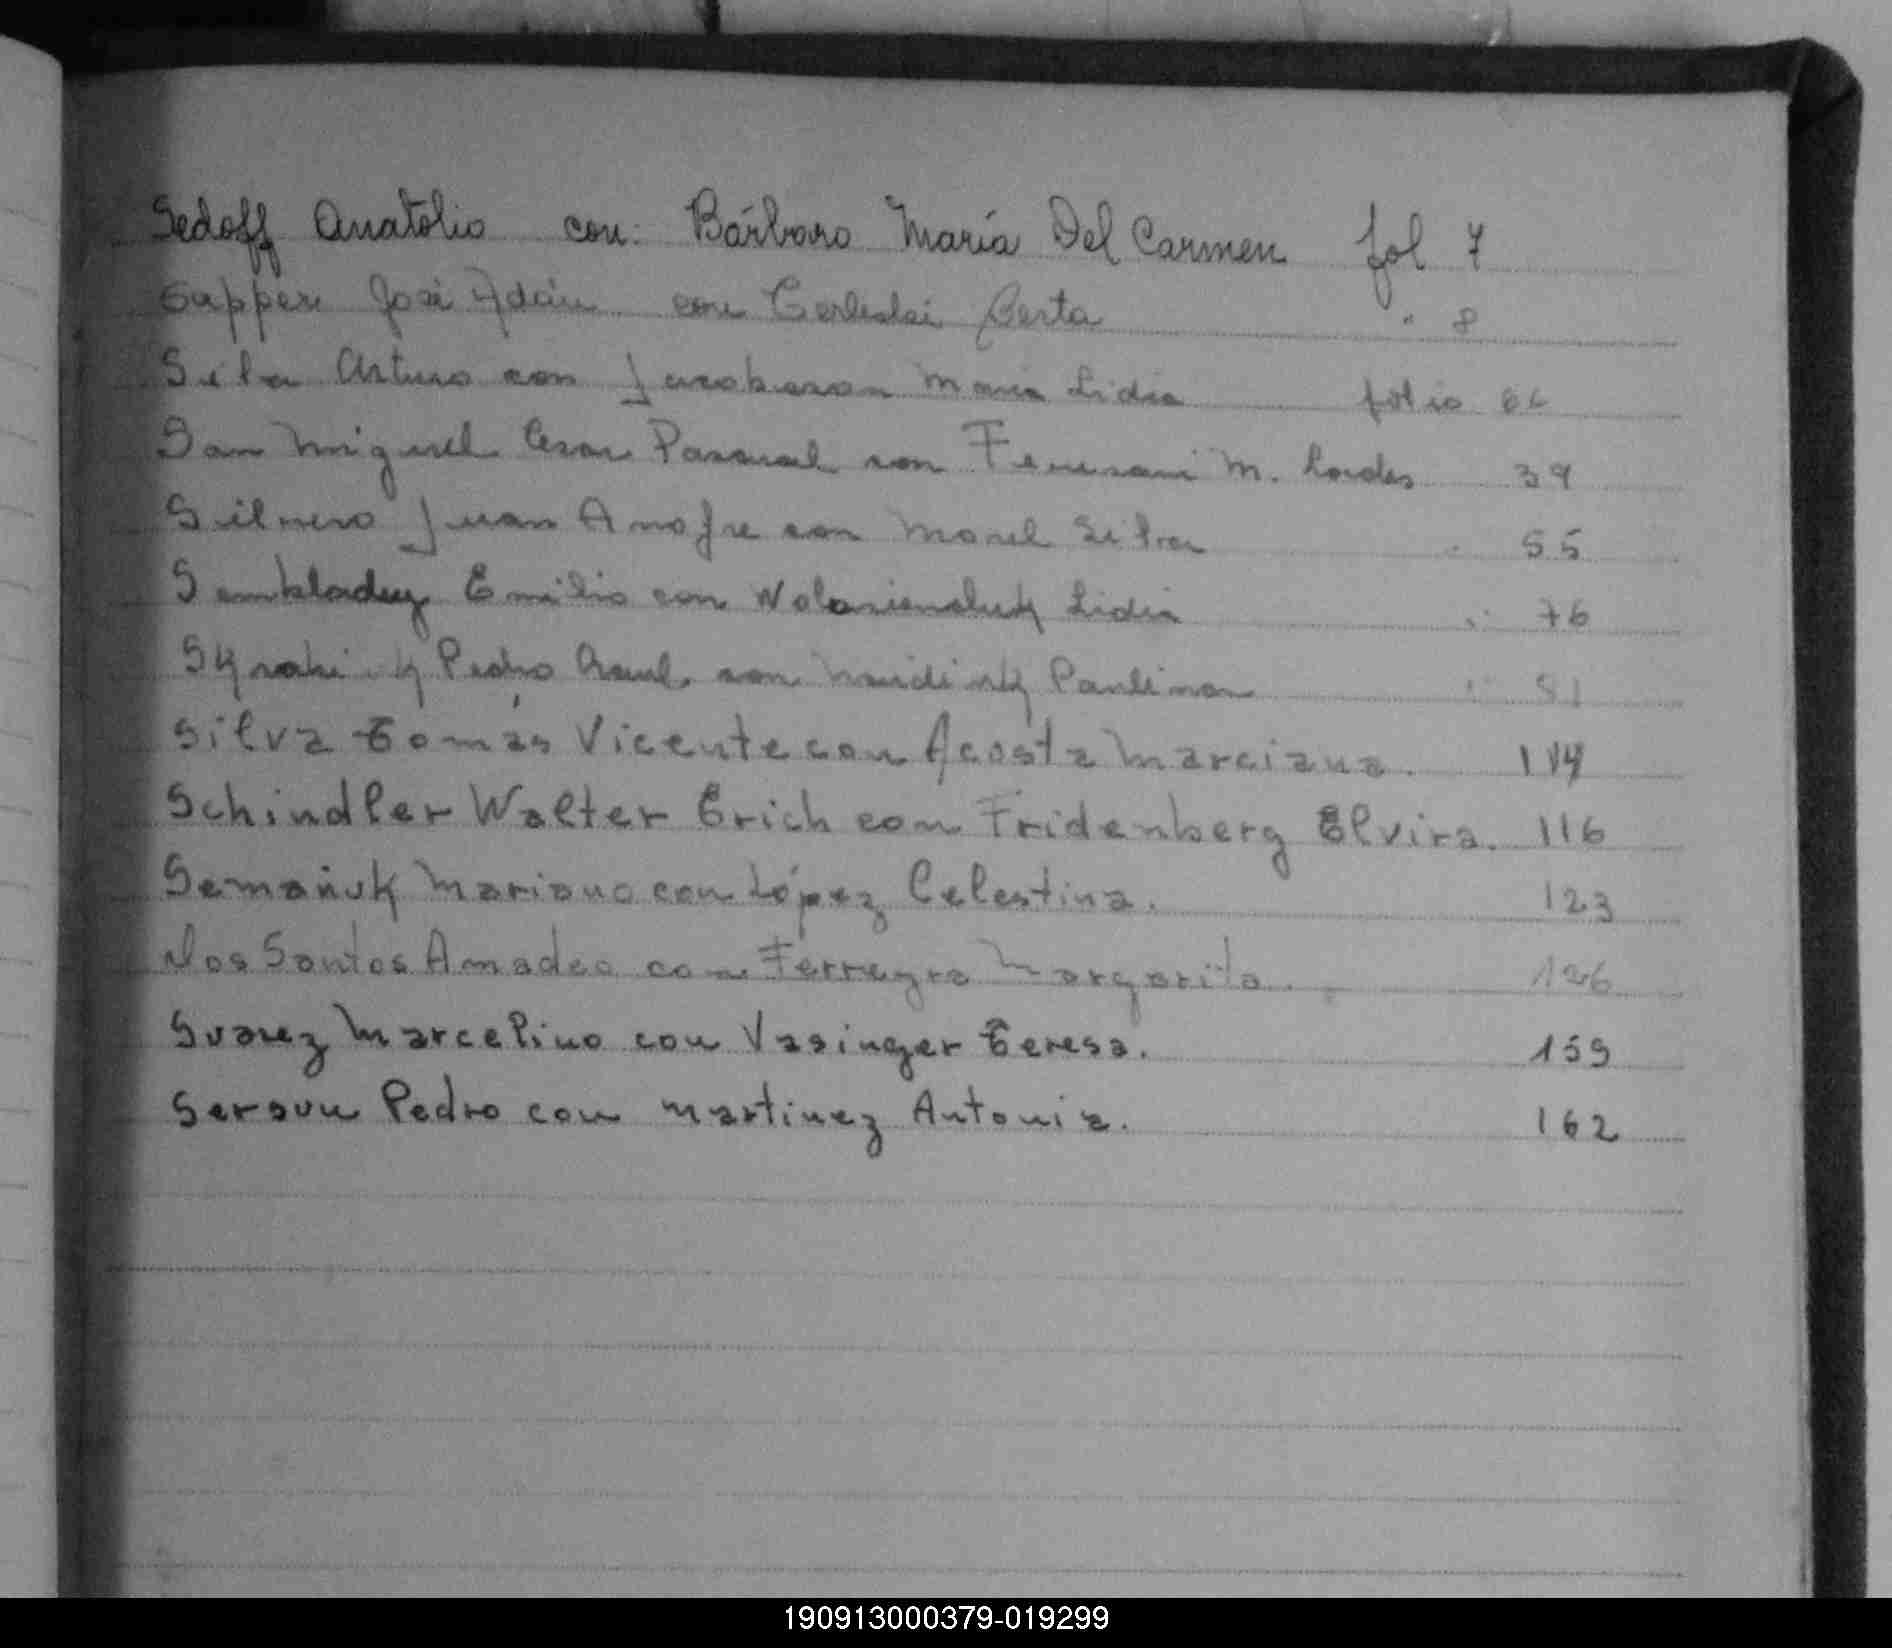 Sedoff Anatolio con: Bárbaro María Del Carmen fol 7
José Adán con Berta " 8
Arturo con Jacobson Maria Lidia folio
San Miguel Cesar Pascual con M. Lordes 39
Juan Anofre con Morel 55
Emilio con Lidia 76
Pedro con Paulina
Silva Tomás Vicente con Acosta Marciana. 114
Schindler Walter Erich con Fridenberg Elvira. 116
Semañuk Mariano con López Celestina. 123
Dos Santos Amadeo con Ferreyra Margarita. 126
Suarez Marcelino con Vasinger Teresa. 159
Seroun Pedro con Martinez Antonia. 162
190913000379-019299